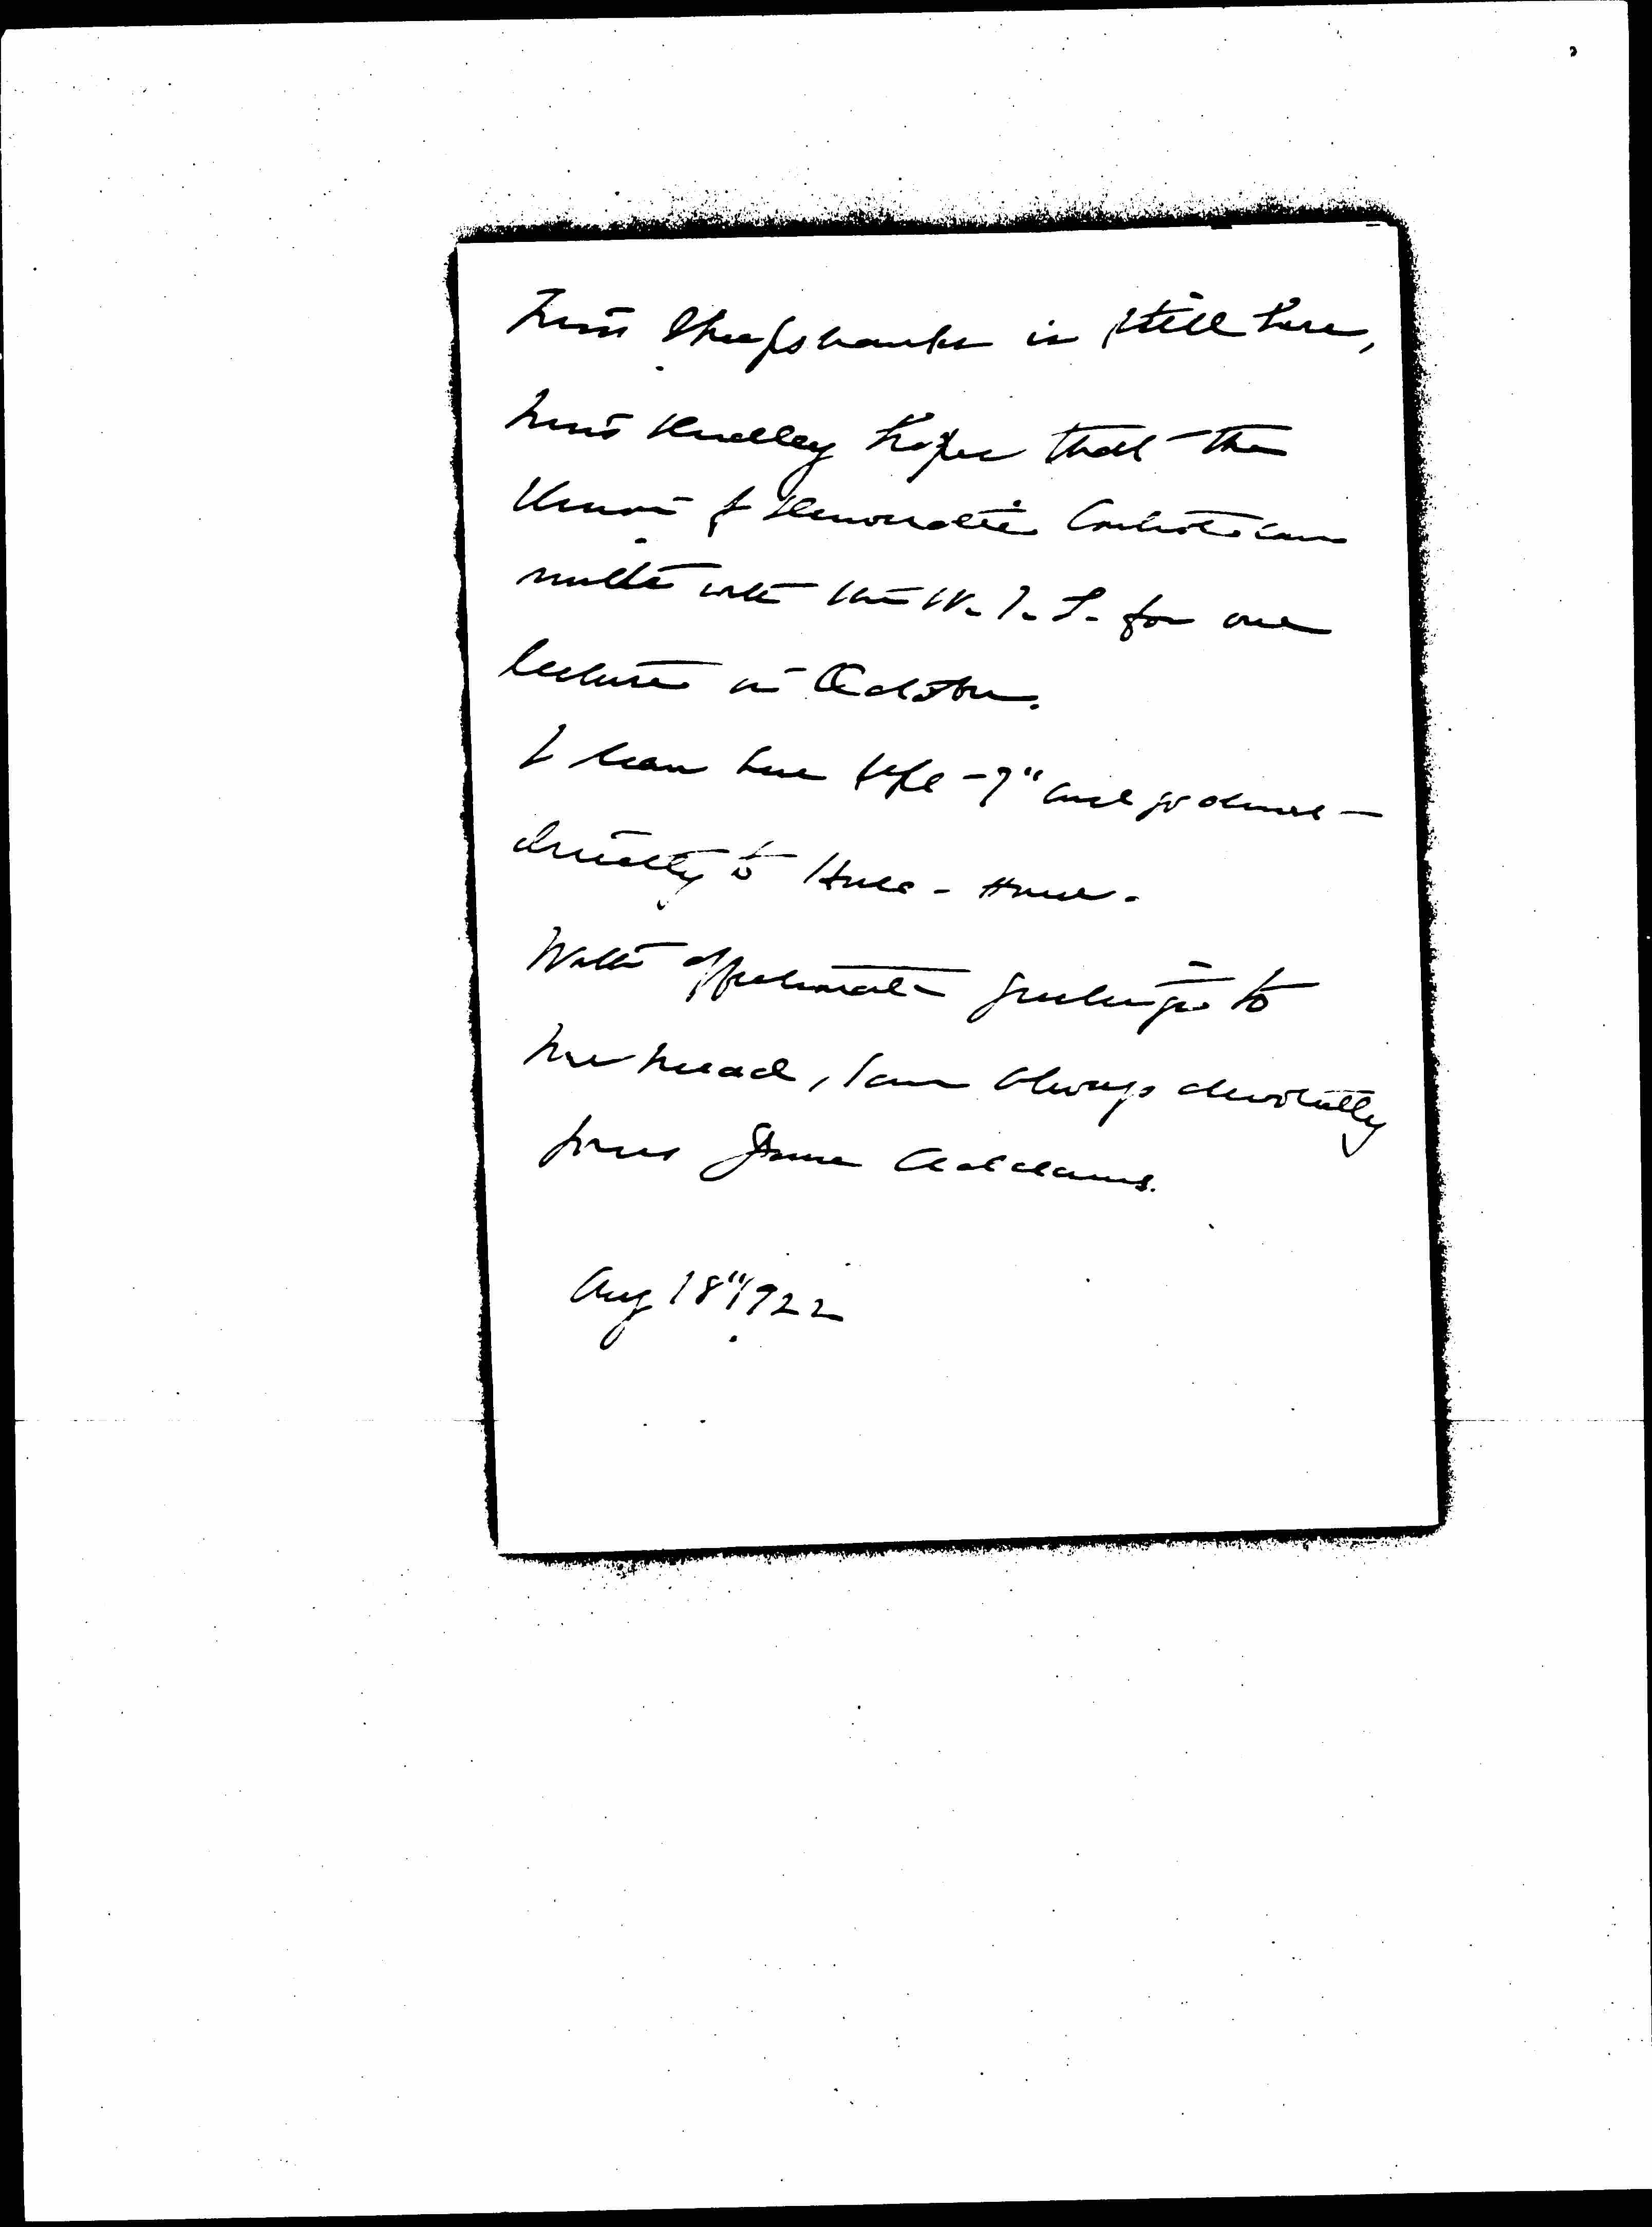 Miss Sheepshanks is still here,
Miss Dudley hopes that the
Union of Democratic Control can
unite with the W. I. L. for one
lecture in October.
I leave here Sept - 7" and go almost
directly to Hull-House.
With affectionate greetings to
Mrs Mead, I am always devotedly
yours Jane Addams.
Aug 18" 1922